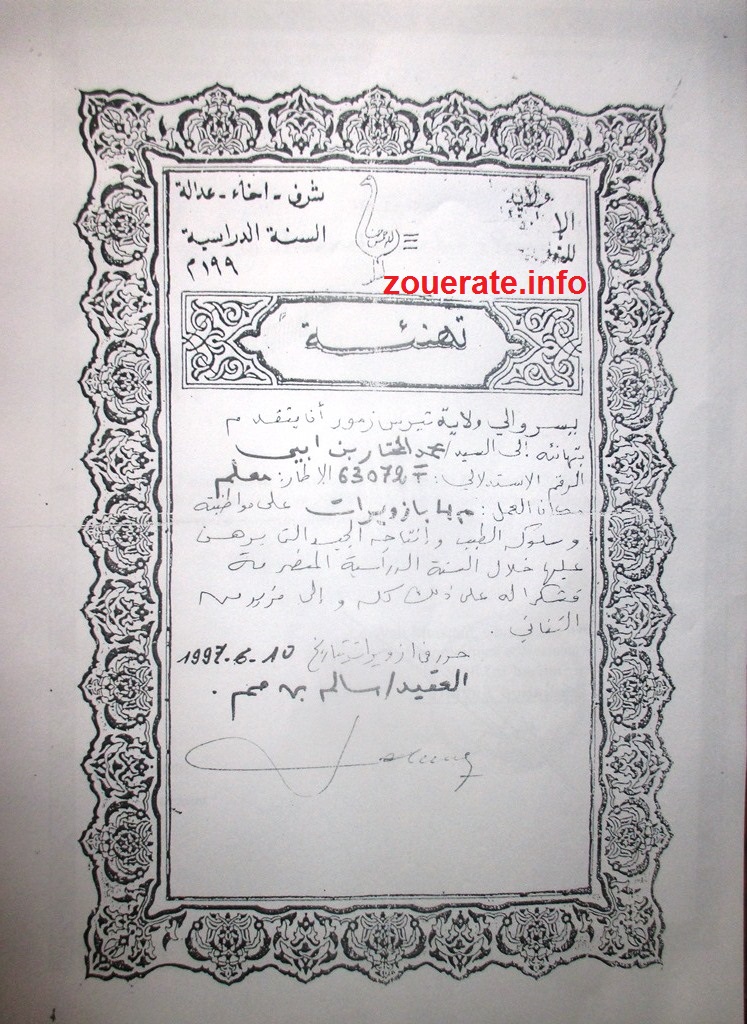 ولاية
شرف - اخاء - عدالة
السنة الدراسية
١٩٩ م
zouerate.info
تهنئة
يسر والي ولاية تيرس زمور أن يتقدم
بتهانئه إلى السيد/محمد المختار بن ابيي
الرقم الاستدلالي: 63072 F الإطار: معلم
مكان العمل: م بازويرات على مواظبته
و سلوكه الطيب و إنتاجه الجيد التي برهن
عليها خلال السنة الدراسية المنصرمة
فشكرا له على ذلك كله و إلى مزيد من
التفاني.
حرر في ازويرات بتاريخ 10-6-1997
العقيد/سالم بن ممم.